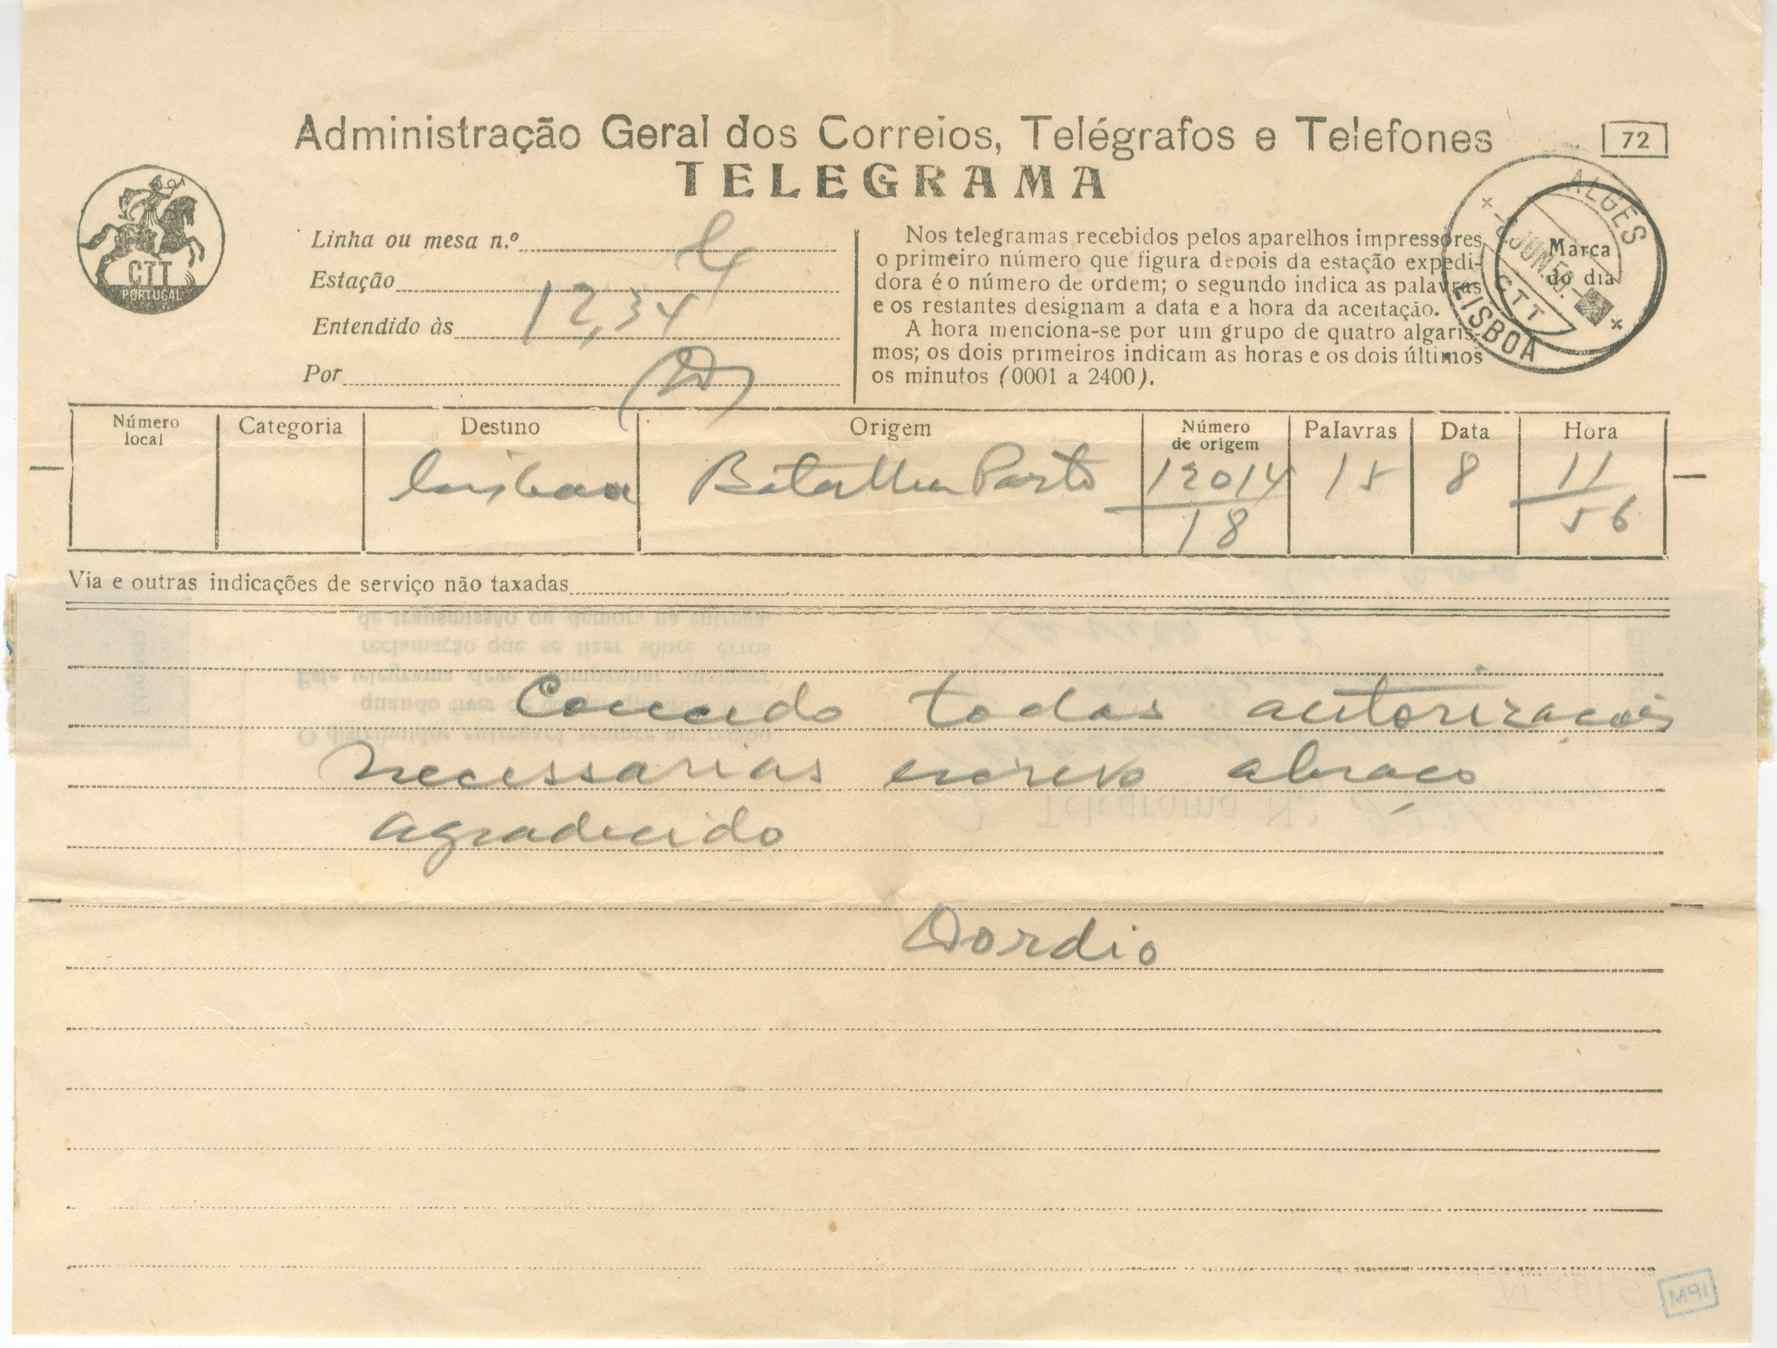 Administração Geral dos Correios, Telégrafos e Telefones
72
TELEGRAMA
CTT
PORTUGAL
Linha ou mesa n.º
Estação
Entendido às 12,34
Por
Nos telegramas recebidos pelos aparelhos impressores
o primeiro número que figura depois da estação expedi-
dora é o número de ordem; o segundo indica as palavras
e os restantes designam a data e a hora da aceitação.
A hora menciona-se por um grupo de quatro algaris-
mos; os dois primeiros indicam as horas e os dois últimos
os minutos (0001 a 2400).
Marca
do dia
ALGÉS
JUN.
CTT
LISBOA
Número
local
Categoria
Destino
Origem
Número
de origem
Palavras
Data
Hora
Lisboa
Batalha Porto
12014
18
15
8
11
56
Via e outras indicações de serviço não taxadas
Concedo todas autorizações
necessarias escrevo abraço
agradecido
Dordio
IPM